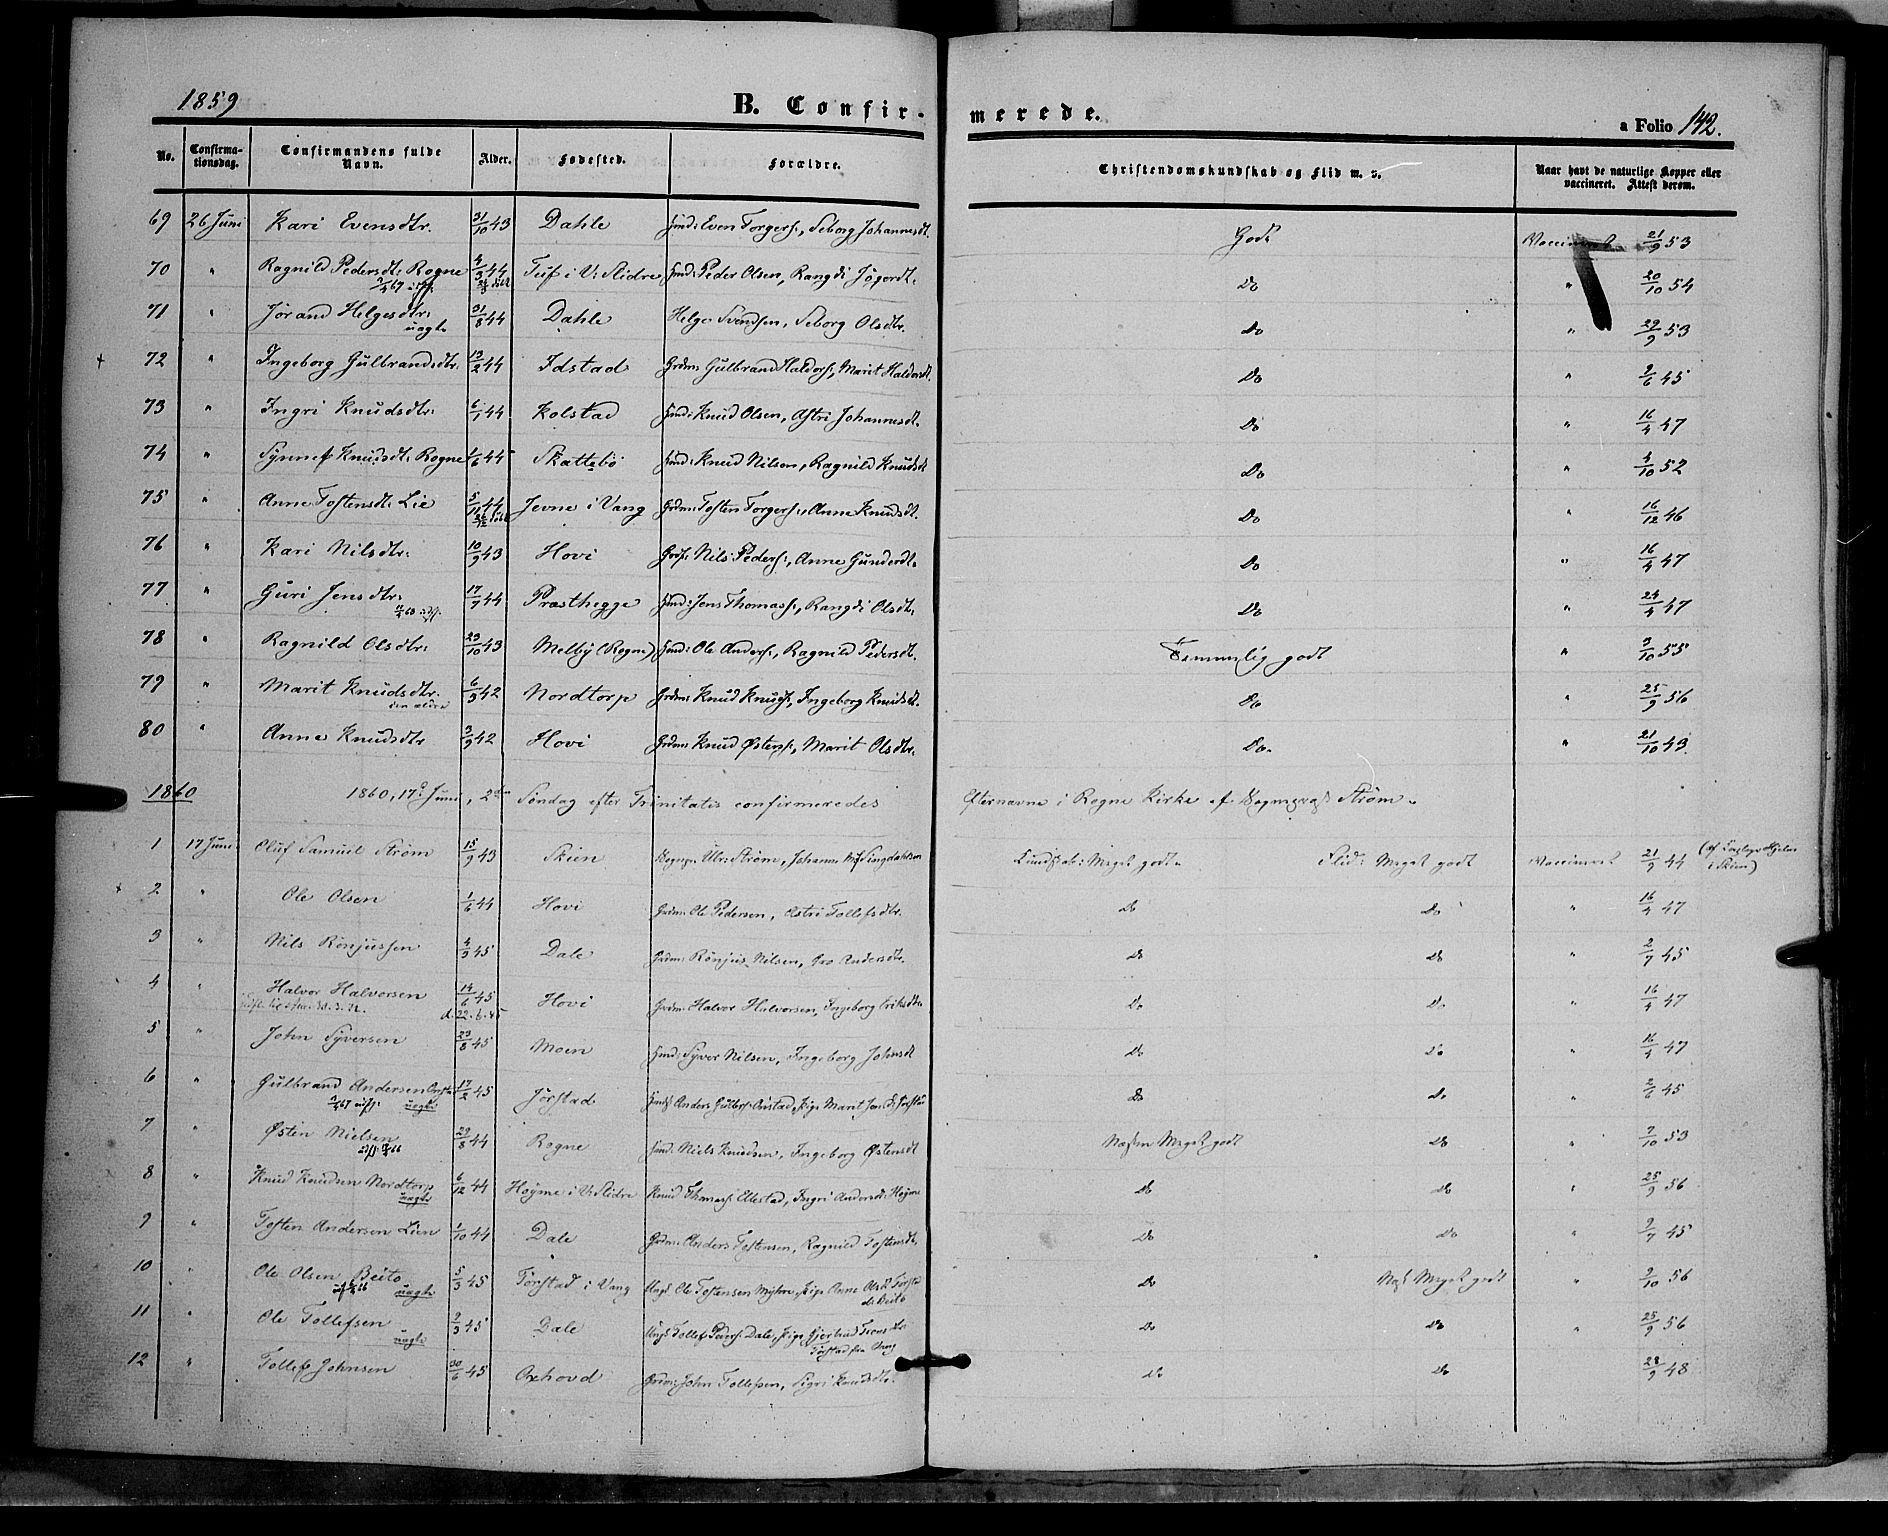 1859 B. Confirmerede. a Folio 142.
No. Confirmationsdag. Confirmandens fulde Navn. Alder. Fødested. Forældre. Christendomskundskab og Flid m. v. Naar havt de naturlige Kopper eller vaccineret. Attest derom.
69 26 Juni Kari Evensdtr. 31/10 43 Dahle Huusmd: Even Torgers:, Seborg Johannesdt. Godt Vaccineret 21/9 53
70 " Ragnild Pedersdt: Rogne 4/3 44 i V: Slidre Peder Olsen, Rangdi Do " 20/10 54
71 " Jørand Helgesdtr: uægte 31/8 44 Dahle Helge Svendsen, Seborg Olsdtr. Do " 29/9 53
72 " Ingeborg Gulbrandsdtr. 13/2 44 Idstad Grdm: Gulbrand Haldors:, Marit Haldorsdt. Do " 2/6 45
73 " Ingri Knudsdtr: 6/1 44 Kolstad Knud Olsen, Astri Johannesdt. Do " 16/4 47
74 " Synnef Knudsdt: Rogne 1/6 44 Skattebø Knud Nilsen, Ragnild Knudsdt Do " 4/10 52
75 " Anne Tostensdt: Lie 5/11 44 Jevne i Vang Grdm: Tosten Torgers:, Anne Knudsdt. Do " 16/12 46
76 " Kari Nilsdtr: 10/9 43 Hovi Nils Peders:, Anne Gunderdt. Do " 16/4 47
77 " Guri Jensdtr: 17/7 44 Præsthegge Jens Thomass:, Rangdi Olsdt: Do " 24/4 47
78 " Ragnild Olsdtr: 23/10 43 Melby (Rogne) Ole Anders:, Ragnild Pedersdt. Temmelig godt " 3/10 55
79 " Marit Knudsdtr. den ældre 6/3 42 Nordtorp Grdm: Knud Knuds:, Ingeborg Knudsdt. Do " 25/9 56
80 " Anne Knudsdtr 3/9 42 Hovi Grdm: Knud Østens:, Marit Olsdtr. Do. " 21/10 43
1860 1860, 17de Juni, 2den Søndag efter Trinitatis confirmeredes Efternævnte i Rogne Kirke af Sogneprest Strøm.
1 17 Juni Oluf Samuel Strøm 15/9 43 Skien Sognepr: Ulr: Strøm, Johanne Kundskab: Meget godt. Flid: Meget godt Vaccineret 21/9 44 i Skien)
2 " Ole Olsen 1/6 44 Hovi Grdm: Ole Pedersen, Astri Tollefsdtr. Do Do " 16/4 47
3 " Nils Rønjussen 4/3 45 Dale Grdm: Rønjus Nilsen, Gro Andersdtr. Do Do " 2/7 45
4 " Halvor Halvorsen 14/6 45 d. 22.6.45 Hovi Grdm: Halvor Halvorsen, Ingeborg Eriksdtr Do Do " 16/4 47
5 " John Syversen 23/8 45 Moen Syver Nilsen, Ingeborg Johnsdt Do Do " 16/4 47
6 " Gulbrand Andersen uægte 17/2 45 Jørstad Anders Do Do " 2/6 45
7 " Østen Nielsen 29/8 44 Rogne Niels Knudsen, Ingeborg Østensdt Næsten Meget godt Do " 7/10 53
8 " Knud Knudsen Nordtorp uægte 6/12 44 Høyme i V: Slidre Knud Thomass: Ellestad, Ingri Andersdt: Høyme Do Do " 25/9 56
9 " Tosten Andersen Lien 1/10 44 Dale Grdm: Anders Tostensen, Ragnild Tostensdt. Do Do " 2/7 45
10 " Ole Olsen Beito uægte 5/3 45 Tørstad i Vang Ungk: Ole Tostensen pige Anne Olsdt: Beito Do Næst Meget godt " 9/10 56
11 " Ole Tollefsen uægte 2/3 45 Dale Ungk: Tollef Peders: Dale, pige Gjertrud Do Do " 25/9 56
12 " Tollef Johnsen 30/6 45 Oxhovd Grdm: John Tollefsen, Sigri Knudsdtr. Do Do 28/9 48